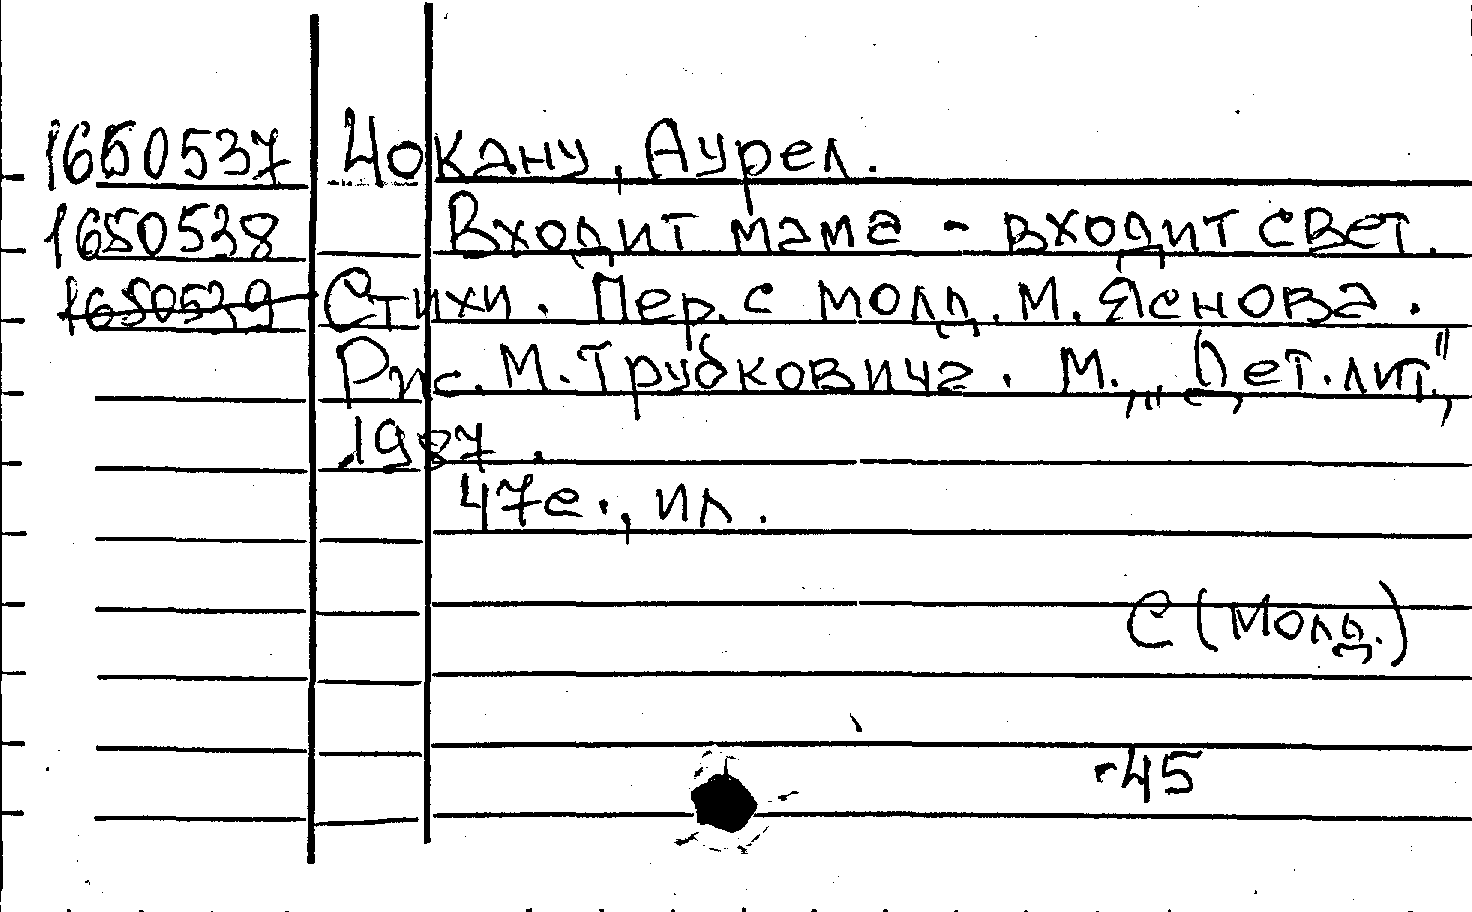 1650537 Чокану, Аурел.
1650538 Входит мама - входит свет.
1650539 Стихи. Пер. с молд. М. Яснова.
Рис. М. Трубковича. М., "Дет. лит.",
1987.
47с., ил.
С (Молд.)
-45